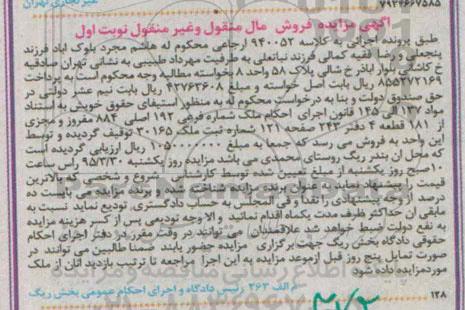 ۷۹۲۴۶۶۷۵۸۵
غیر تجاری تهران
آگهی مزایده فروش مال منقول وغیر منقول نوبت اول
طبق پرونده اجرائی به کلاسه ۹۴۰۰۵۲ ارجاعی محکوم له هاشم مجرد بلوک اباد فرزند
پنجعلی و رضا فقیه کمالی فرزند نیازعلی به طرفیت مهرداد طبیبی به نشانی تهران صادقیه
خ کاشانی بلوار اباذر خ شالی پلاک ۵۸ واحد ۸ بخواسته مطالبه وجه محکوم است به پرداخت
۸۵۵۲۷۲۱۶۹ ریال بابت اصل خواسته و مبلغ ۴۲۷۶۳۶۰۸ ریال بابت نیم عشر دولتی در
حق صندوق دولت و بنا به درخواست محکوم له به منظور استیفای حقوق خویش به استناد
مواد ۱۳۷ الی ۱۴۵ قانون اجرای احکام ملک شماره فرعی ۱۹۲ اصلی ۸۸۴ مفروز و مجزی
از ۱۸۱ قطعه ۴ دفتر ۲۴۳ صفحه ۱۲۱ شماره ثبت ملک ۳۰۱۶۵ توقیف گردیده و توسط
این واحد به فروش می رسد که جمعا به مبلغ ۱۰۵۰۰۰۰۰۰۰ ریال ارزیابی گردیده است
که محل ان بندر ریگ روستای محمدی می باشد مزایده روز یکشنبه ۹۵/۳/۳۰ راس ساعت
۱۰صبح روز یکشنبه از مبلغ تعیین شده توسط کارشناس شروع و شخصی که بالاترین
قیمت را پیشنهاد نماید به عنوان برنده مزایده شناخته شده و برنده مزایده می بایست ده
درصد از وجه پیشنهادی را نقدا و فی المجلس به حساب دادگستری تودیع نماید نسبت به
مابقی ان حداکثر ظرف مدت یکماه اقدام نمائید و الا وجه تودیعی پس از کسر هزینه مزایده
به نفع دولت ضبط خواهد شد علاقمندان می توانند در وقت مقرر در دفتر اجرای احکام
حقوقی دادگاه بخش ریگ جهت برگزاری مزایده حضور یابند ضمنا طالبین می توانند در
صورت تمایل پنج روز قبل ازموعد مزایده به این اجرا مراجعه تا ترتیب بازدید انان از ملک
موردمزایده داده شود
م الف ۲۶۳ رئیس دادگاه و اجرای احکام عمومی بخش ریگ
۱۲۸